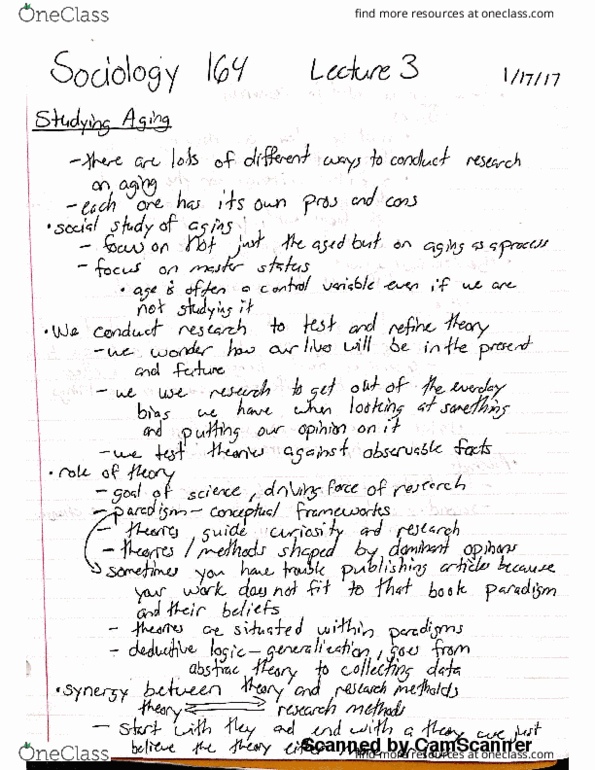 OneClass
find more resources at oneclass.com
Sociology 164 Lecture 3 1/17/17
Studying Aging
- there are lots of different ways to conduct research
on aging
- each one has its own pros and cons
• social study of aging
- focus on not just the aged but on aging as a process
- focus on master status
• age is often a control variable even if we are
not studying it
• We conduct research to test and refine theory
- we wonder how our lives will be in the present
and future
- we use research to get out of the everyday
bias we have when looking at something
and putting our opinion on it
- we test theories against observable facts
• role of theory
- goal of science, driving force of research
- paradigm - conceptual frameworks
- theories guide curiosity and research
- theories / methods shaped by dominant opinions
sometimes you have trouble publishing articles because
your work does not fit to that book paradigm
and their beliefs
- theories are situated within paradigms
- deductive logic - generalization, goes from
abstrac theory to collecting data
• synergy between theory and research metholds
theory research methods
- start with they and end with a theory we just
believe the theory
Scanned by CamScanner
OneClass
find more resources at oneclass.com